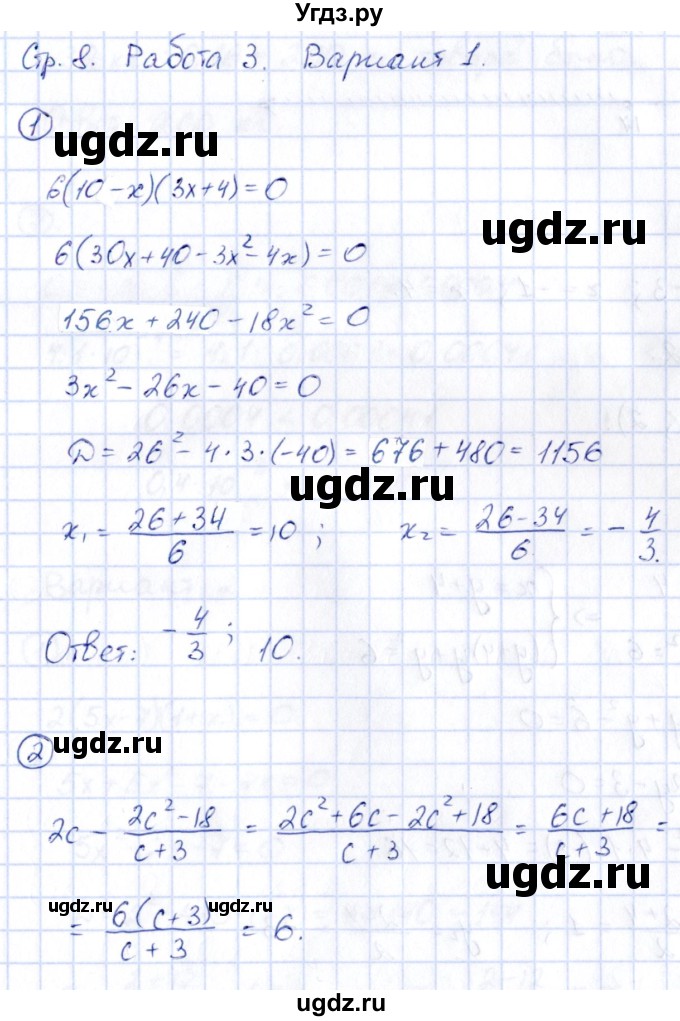 Угдз.ру
Стр. 8. Работа 3. Вариант 1.
1
ugdz.ru
6(10-x)(3x+4)=0
6(30x+40-3x²-4x)=0
ugdz.ru
156x+240-18x²=0
3x²-26x-40=0
D=26²-4·3·(-40)=676+480=1156
ugdz.ru
x₁=(26+34)/6=10; x₂=(26-34)/6=-4/3.
Ответ: -4/3; 10.
2 ugdz.ru
2c-(2c²-18)/(c+3)=(2c²+6c-2c²+18)/(c+3)=(6c+18)/(c+3)=
ugdz.ru
ugdz.ru ugdz.ru
=6(c+3)/(c+3)=6.
ugdz.ru